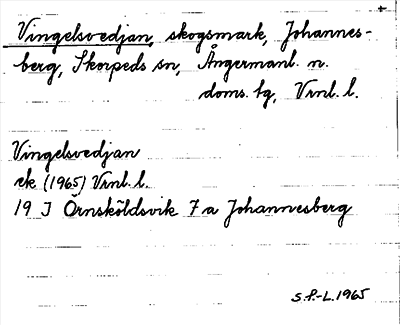 Vingelsvedjan, skogsmark, Johannes-
berg, Skorpeds sn, Ångermanl. n.
doms. tg, Vrnl. l.
Vingelsvedjan
ek (1965) Vrnl. l.
19 J Örnsköldsvik 7 a Johannesberg
S.P.-L. 1965